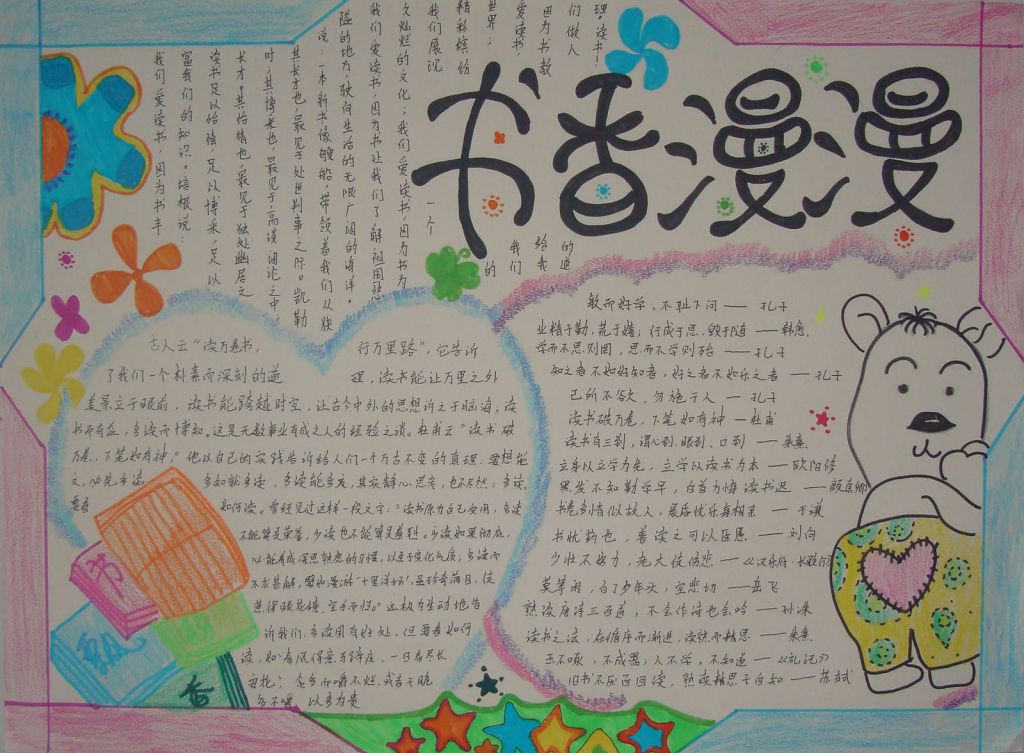 书香漫漫
我们爱读书，因为书丰
富我们的知识。培根说：
读书足以怡情，足以博采，足以
长才。其怡情也，最见于独处幽居之
时；其博采也，最见于高谈阔论之中；
其长才也，最见于处世判事之际。凯勒
说：一本新书像一艘船，带领着我们从狭
隘的地方，驶向生活的无限广阔的海洋。
我们爱读书，因为书让我们了解祖国悠
久灿烂的文化；我们爱读书，因为书为
我们展现一个
精彩缤纷
世界；的
爱读书，我们
因为书教给我
们做人的道
理。读书！
古人云“读万卷书，行万里路”，它告诉
了我们一个朴素而深刻的道理，读书能让万里之外
美景立于眼前，读书能跨越时空，让古今中外的思想诉之于脑海；读
书而有益，多读而博知。这是无数事业有成之人的经验之谈。杜甫云“读书破
万卷，下笔如有神。”他以自己的实践告诉给人们一个万古不变的真理：要想能
文，必先多读 多知就多读，多读能多克，其实静心思来，也不尽然：多读，
要看 如何读。曾经见过这样一段文字：“读书原为自己受用，多读
不能算是荣誉，少读也不能算是羞耻。少读如果彻底，
必能养成深思熟虑的习惯，以至于变化气质；多读而
不求甚解，譬如漫游“十里洋场”，虽珍奇满目，徒
惹得眼花缭，空手而归。”这极为生动地告
诉我们：多读固有好处，但要看如何
读，如“春风得意马蹄疾，一日看尽长
安花”，
多不嚼，以多为贵
书
敏而好学，不耻下问——孔子
业精于勤，荒于嬉；行成于思，毁于随——韩愈
学而不思则罔，思而不学则殆——孔子
知之者不如好知者，好之者不如乐之者——孔子
己所不欲，勿施于人—孔子
读书破万卷，下笔如有神—杜甫
读书有三到，谓心到、眼到、口到——朱熹
立身以立学为先，立学以读书为本——欧阳修
黑发不知勤学早，白首方悔读书迟——颜真卿
书卷多情似故人，晨昏忧乐每相亲——于谦
书犹药也，善读之可以医愚——刘向
少壮不努力，老大徒伤悲——《汉乐府·长歌行》
莫等闲，白了少年头，空悲切——岳飞
熟读唐诗三百首，不会作诗也会吟——孙洙
读书之法，在循序而渐进，读熟而精思——朱熹
玉不啄，不成器；人不学，不知道——《礼记》
旧书不厌百回读，熟读精思子自知——苏轼
香